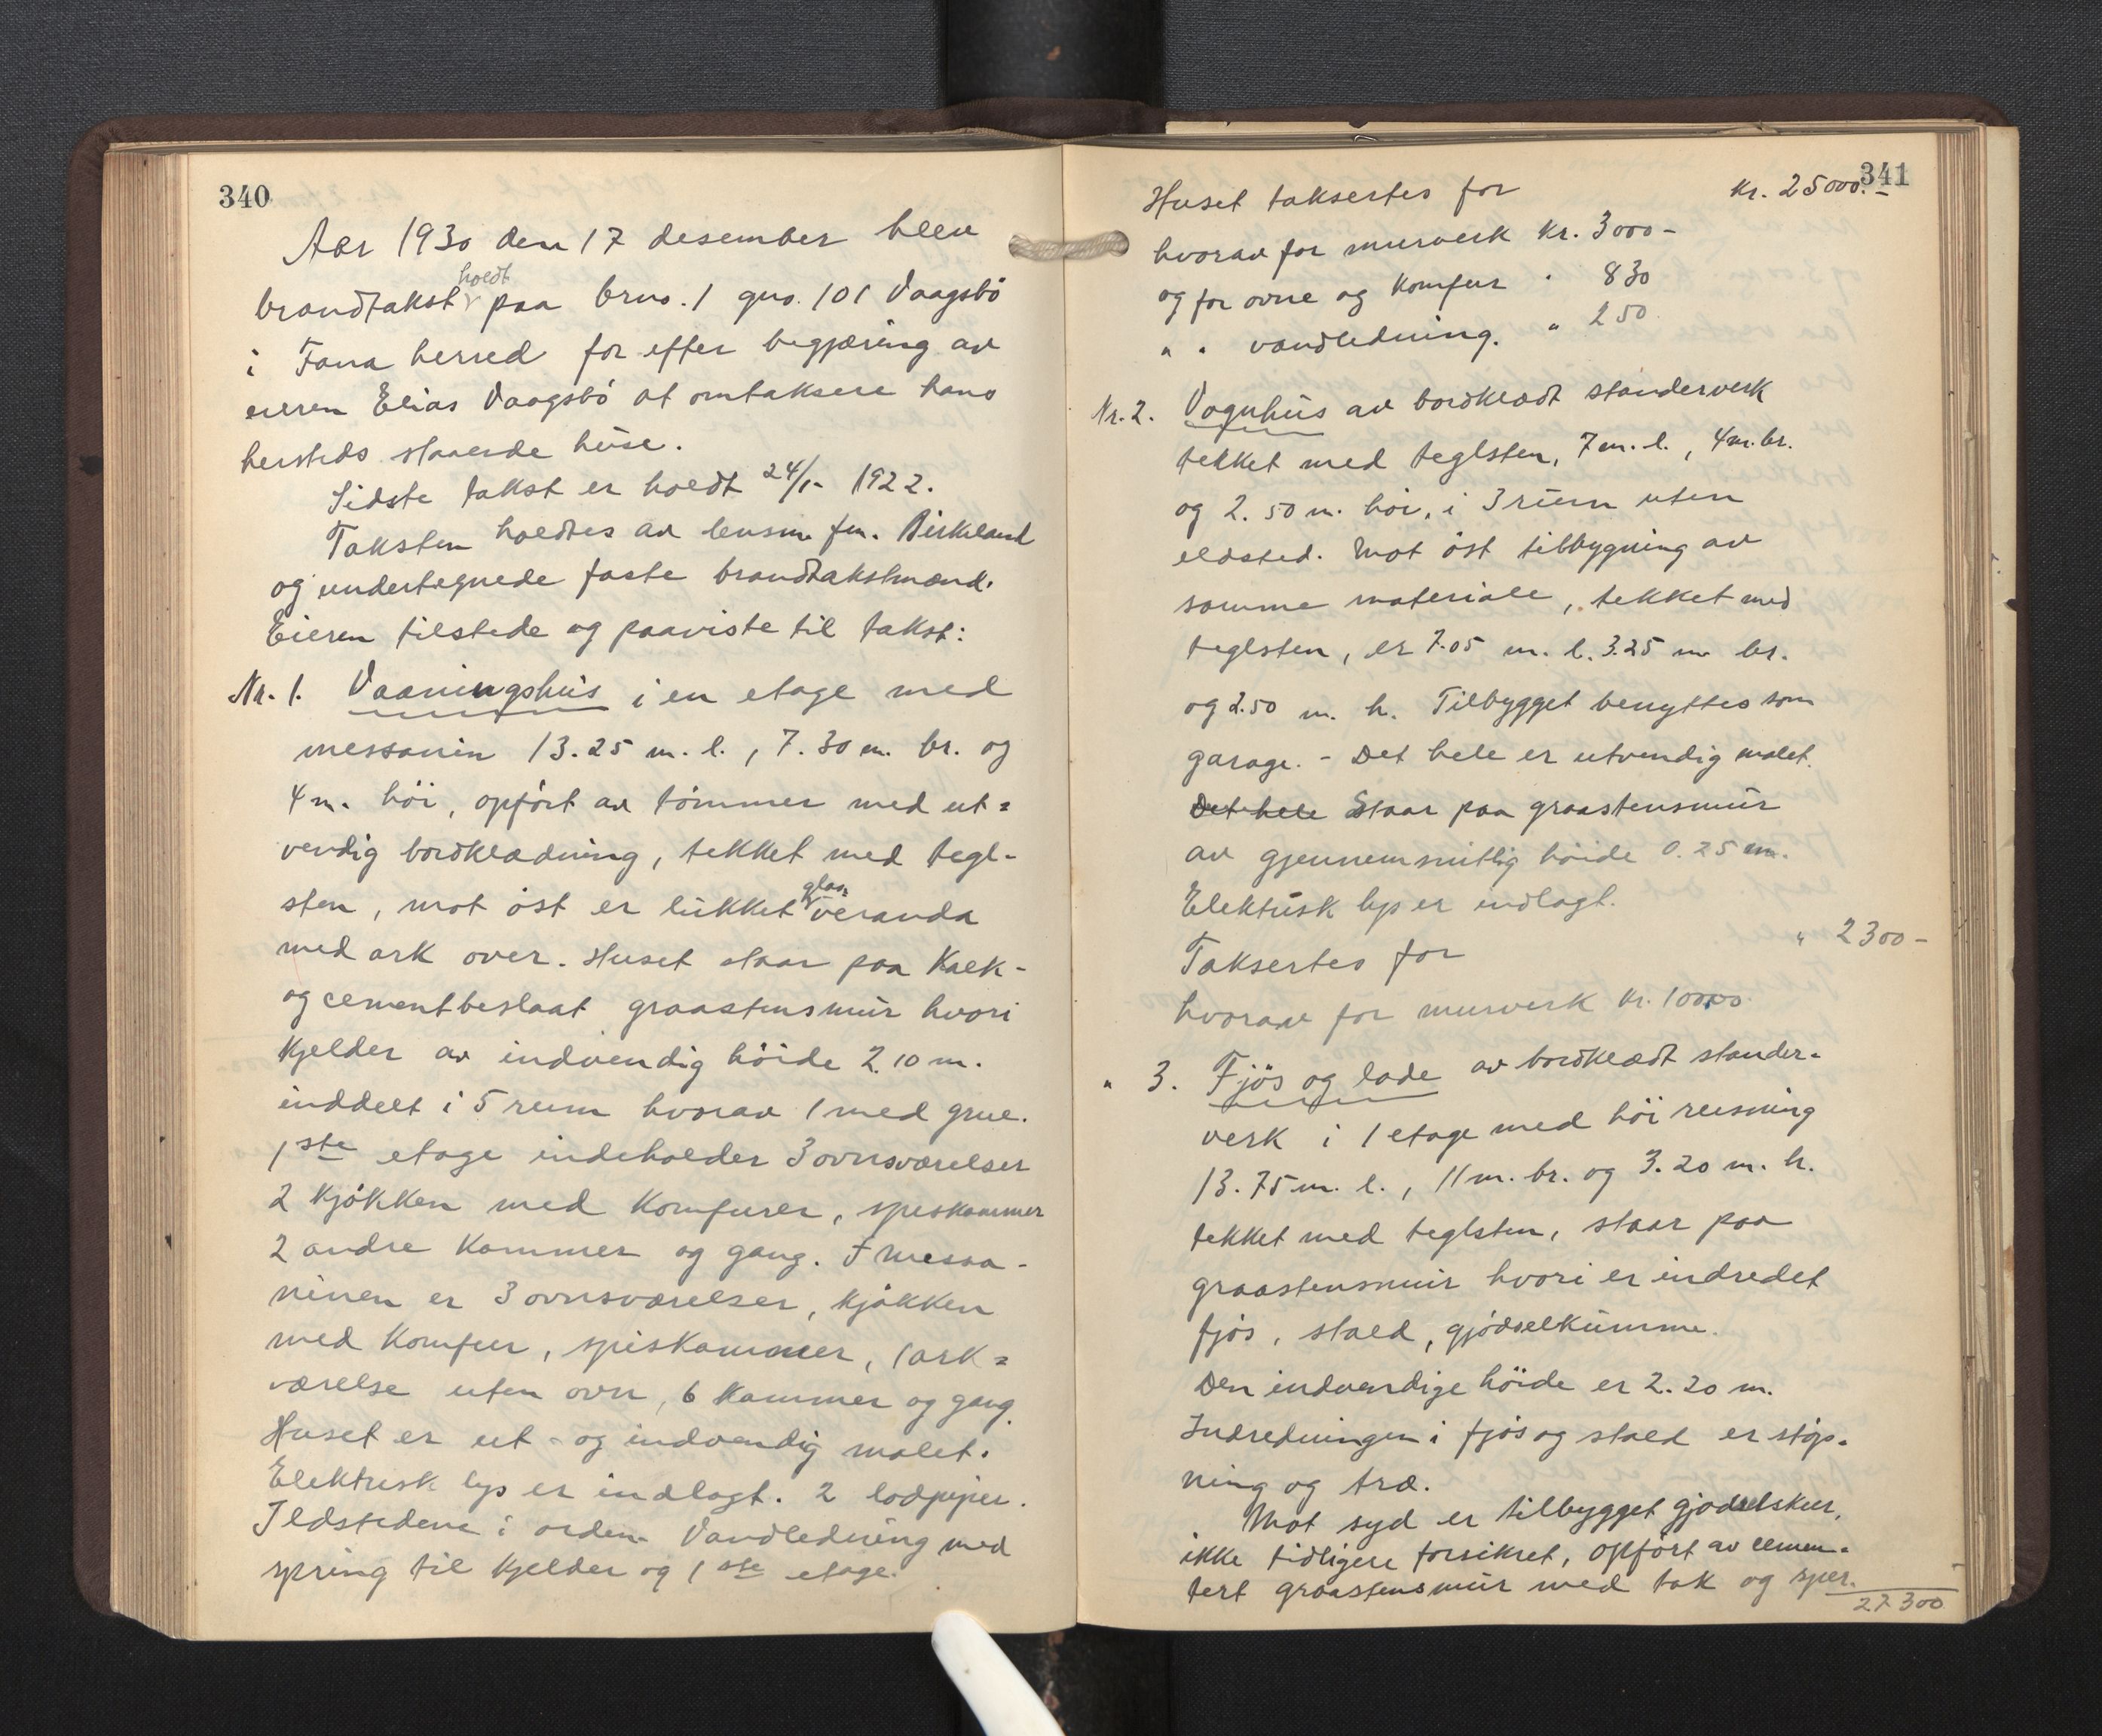 340
Aar 1930 den 17 desember blev
brandtakst holdt paa brno. 1 gno. 101 Vaagsbö
i Fana herred for efter begjæring av
eieren Elias Vaagsbö at omtaksere hans
hersteds staaende huse.
Sidste takst er holdt 24/1- 1922.
Taksten holdtes av lensm. fm. Birkeland
og undertegnede faste brandtakstmænd.
Eieren tilstede og paaviste til takst:
Nr. 1. Vaaningshus i en etage med
messanin 13.25 m. l., 7.30 m. br. og
4 m. höi, opfört av tömmer med ut=
vendig bordklædning, tekket med tegl-
sten, mot öst er lukket glas veranda
med ark over. Huset staar paa kalk-
og cementbeslaat graastensmur hvori
kjelder av indvendig höide 2.10 m.
inddelt i 5 rum hvorav 1 med grue.
1ste etage indeholder 3 ovnsværelser
2 kjökken med komfurer, speskammer
2 andre kammer og gang. I messa-
ninen er 3 ovnsværelser, kjökken
med komfur, spiskammer, 1 ark=
værelse uten ovn, 6 kammer og gang.
Huset er ut- og indvendig malet.
Elektrisk lys er indlagt. 2 lodpiper.
Ildstedene i orden. Vandledning med
spring til kjelder og 1ste etage.
341
Huset taksertes for kr. 25000.-
hvorav for murverk kr. 3000-
og for ovne og komfur " 830
" " vandledning. " 250
Nr. 2. Vognhus av bordklædt standerverk
tekket med teglsten, 7 m. l., 4 m. br.
og 2.50 m. höi, i 3 rum uten
eldsted. Mot öst tilbygning av
samme materiale, tekket med
teglsten, er 7.05 m. l. 3.25 m br.
og 2.50 m. h. Tilbygget benyttes som
garage. - Det hele er utvendig malet.
Det hele Staar paa graastensmur
av gjennemsnitlig höide 0.25 m.
Elektrisk lys er indlagt.
Taksertes for " 2300-
hvorav for murverk kr. 100.00.
" 3. Fjös og lade av bordklædt stander-
verk i 1 etage med höi reisning
13.75 m. l., 11 m. br. og 3.20 m. h.
tekket med teglsten, staar paa
graastensmur hvori er indredet
fjös, stald, gjödselkumme.
Den indvendige höide er 2.20 m.
Indredningen i fjös og stald er stöp-
ning og træ.
Mot syd er tilbygget gjödselskur,
ikke tidligere forsikret, opfört av cemen-
tert graastensmur med tak og sper.
27300